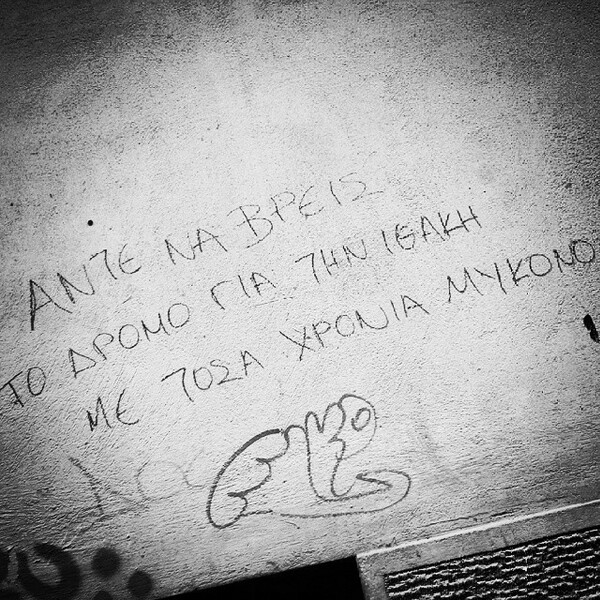 ΑΝΤΕ ΝΑ ΒΡΕΙΣ
ΤΟ ΔΡΟΜΟ ΓΙΑ ΤΗΝ ΙΘΑΚΗ
ΜΕ ΤΟΣΑ ΧΡΟΝΙΑ ΜΥΚΟΝΟ